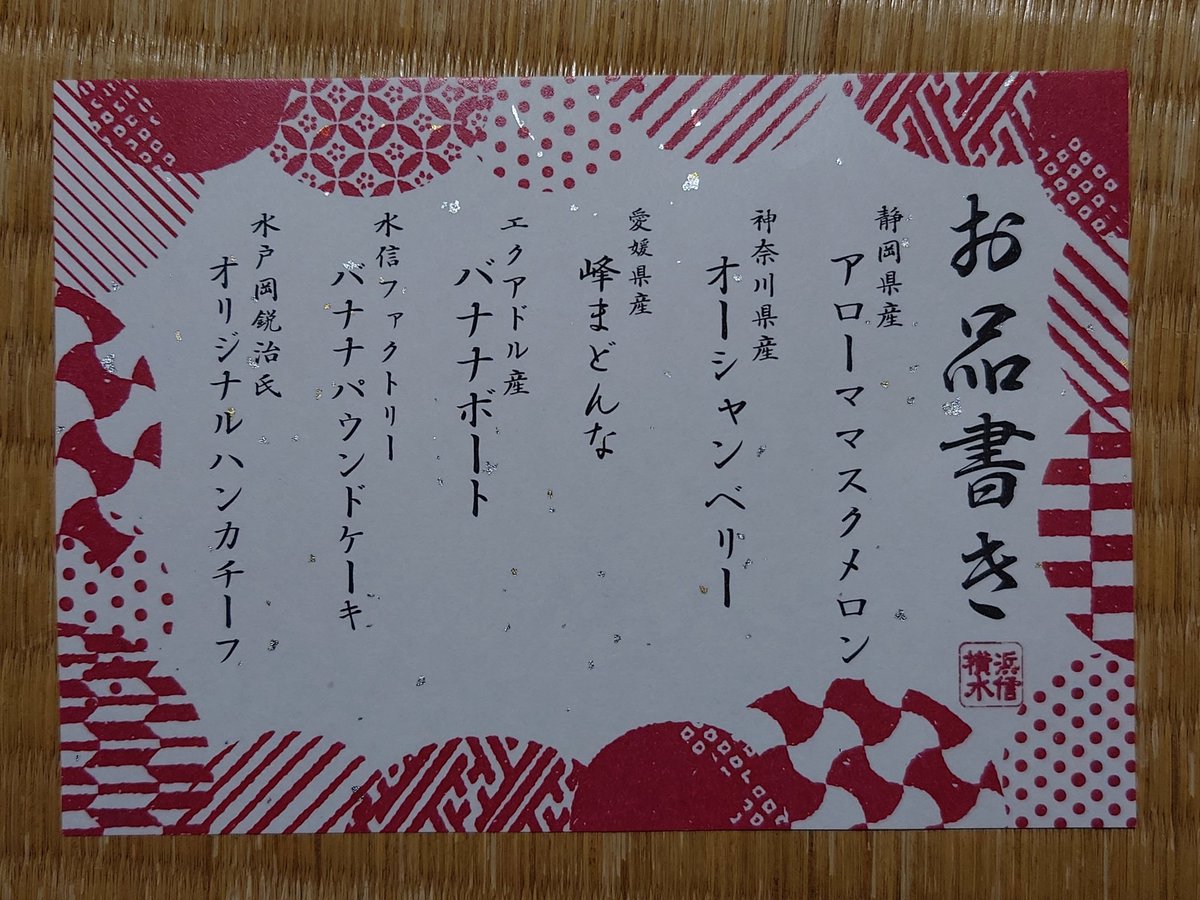 お品書き
横浜
水信
静岡県産
アローママスクメロン
神奈川県産
オーシャンベリー
愛媛県産
峰まどんな
エクアドル産
バナナボート
水信ファクトリー
バナナパウンドケーキ
水戸岡鋭治氏
オリジナルハンカチーフ